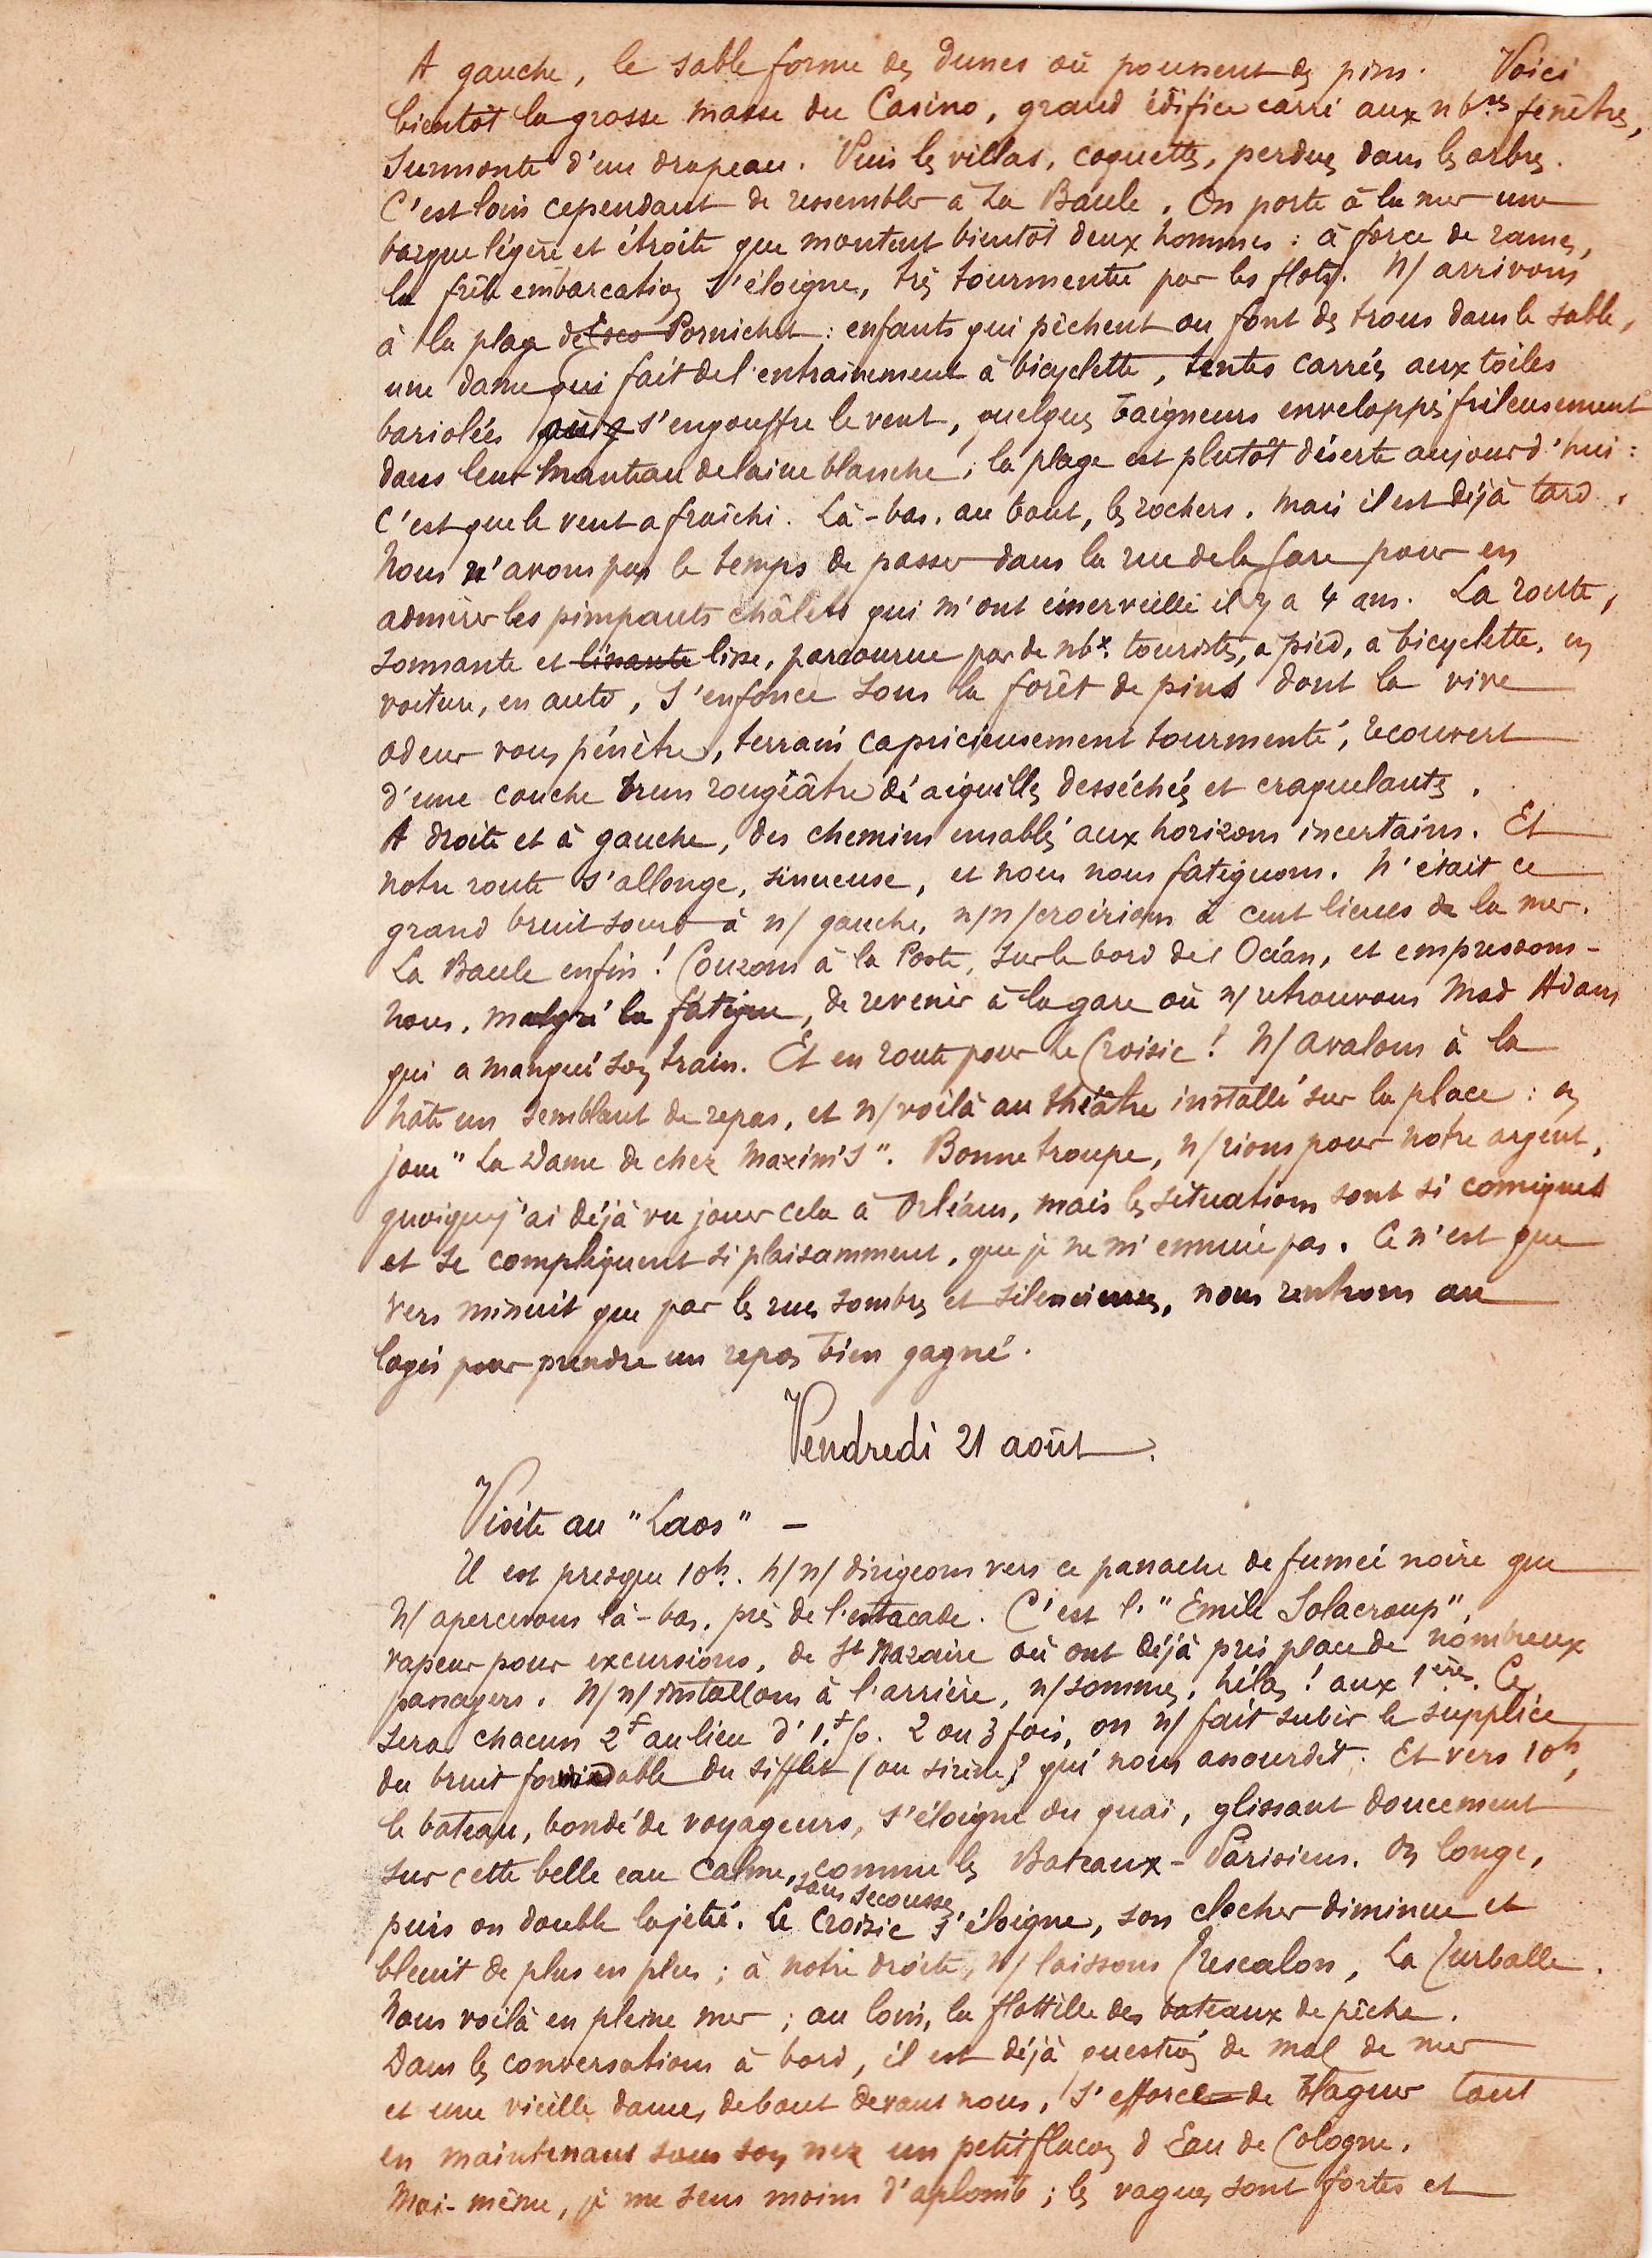 A gauche, le sable forme des dunes où poussent des pins. Voici
bientôt la grosse masse du Casino, grand édifice carré aux nbses fenêtres,
surmonté d'un drapeau. Puis les villas, coquettes, perdues dans les arbres.
C'est loin cependant de ressembler à La Baule. On porte à la mer une
barque légère et étroite que montent bientôt deux hommes : à force de rames,
la frêle embarcation s'éloigne, très tourmentée par les flots. N/ arrivons
à la plage de Pornichet : enfants qui pêchent ou font des trous dans le sable,
une dame qui fait de l'entraînement à bicyclette, tentes carrées aux toiles
bariolées où s'engouffre le vent, quelques baigneurs enveloppés frileusement
dans leur manteau de laine blanche ; la plage est plutôt déserte aujourd'hui :
c'est que le vent a fraîchi. Là-bas, au bout, les rochers. Mais il est déjà tard.
Nous n'avons pas le temps de passer dans la rue de la Gare pour en
admirer les pimpants châlets qui m'ont émerveillé il y a 4 ans. La route,
sonnante et lisante lisse, parcourue par de nbx touristes, à pied, à bicyclette, en
voiture, en auto, s'enfonce sous la forêt de pins dont la vive
odeur vous pénètre, terrain capricieusement tourmenté, recouvert
d'une couche brun rougeâtre d'aiguilles desséchées et craquelantes.
A droite et à gauche, des chemins ensablés aux horizons incertains. Et
notre route s'allonge, sinueuse, et nous nous fatiguons. N'était ce
grand bruit sourd à n/ gauche, n/ n/ croirions à cent lieues de la mer.
La Baule enfin ! Courons à la Poste, sur le bord de l'Océan, et empressons-
nous, malgré la fatigue, de revenir à la gare où n/ retrouvons Mad Adam
qui a manqué son train. Et en route pour Le Croisic ! N/ avalons à la
hâte un semblant de repas, et n/ voilà au théâtre installé sur la place : on
joue "La Dame de chez Maxim's". Bonne troupe, n/ rions pour notre argent,
quoique j'ai déjà vu jouer cela à Orléans, mais les situations sont si comiques
et se compliquent si plaisamment, que je ne m'ennuie pas. Ce n'est que
vers minuit que par les rues sombres et silencieuses, nous rentrons au
logis pour prendre un repos bien gagné.
Vendredi 21 août.
Visite au "Laos" –
Il est presque 10h. N/ n/ dirigeons vers ce panache de fumée noire que
n/ apercevons là-bas, près de l'estacade. C'est l'"Emile Solacroup",
vapeur pour excursions, de St Nazaire où ont déjà pris place de nombreux
passagers. N/ n/ installons à l'arrière, n/ sommes, hélas ! aux 1ères. Ce
sera chacun 2f au lieu d'1,f50. 2 ou 3 fois, on n/ fait subir le supplice
du bruit formidable du sifflet (ou sirène) qui nous assourdit. Et vers 10h,
le bateau, bondé de voyageurs, s'éloigne du quai, glissant doucement
sur cette belle eau calme, sans secousse, comme les Bateaux-Parisiens. On longe,
puis on double la jetée. Le Croisic s'éloigne, son clocher diminue et
bleuit de plus en plus ; à notre droite, n/ laissons Trescalon, La Turballe.
Nous voilà en pleine mer ; au loin, la flottille des bateaux de pêche.
Dans les conversations à bord, il est déjà question de mal de mer
et une vieille dame, debout devant nous, s'efforce de blaguer tout
en maintenant sous son nez un petit flacon d'Eau de Cologne.
Moi-même, je me sens moins d'aplomb ; les vagues sont fortes et